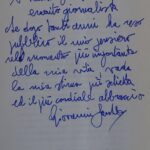 emerito giornalista
Se dopo tanti anni ha reso
pubblico il mio pensiero
nel momento più importante
della mia vita, vada
la mia stima più schietta
ed il più cordiale abbraccio
Giovanni